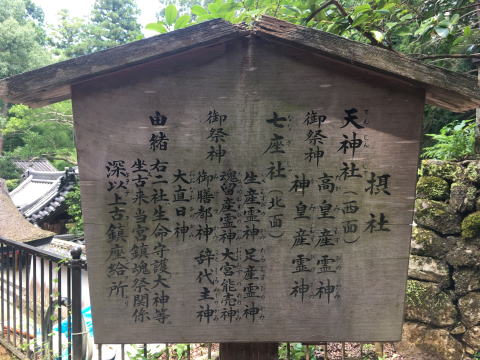 摂社
天神社（西面）
御祭神 高皇産霊神
神皇産霊神
七座社（北面）
生産霊神 足産霊神
御祭神 魂留産霊神 大宮能売神
御膳都神 辞代主神
大直日神
由緒 右二社生命守護大神等
坐古来当宮鎮魂祭関係
深以上古鎮座給所